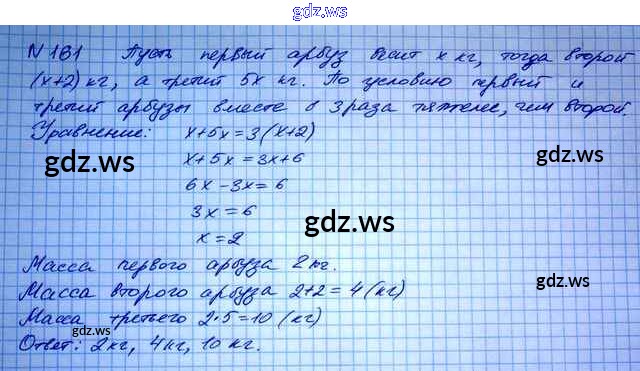 gdz.ws
N 161 Пусть первый арбуз весит x кг, тогда второй
(x+2) кг, а третий 5x кг. По условию первый и
третий арбузы вместе в 3 раза тяжелее, чем второй.
Уравнение: x+5x=3(x+2)
gdz.ws
x+5x=3x+6
gdz.ws
6x-3x=6
3x=6
gdz.ws
x=2
Масса первого арбуза 2 кг.
gdz.ws
Масса второго арбуза 2+2=4(кг)
Масса третьего 2·5=10 (кг)
gdz.ws
Ответ: 2кг, 4кг, 10 кг.